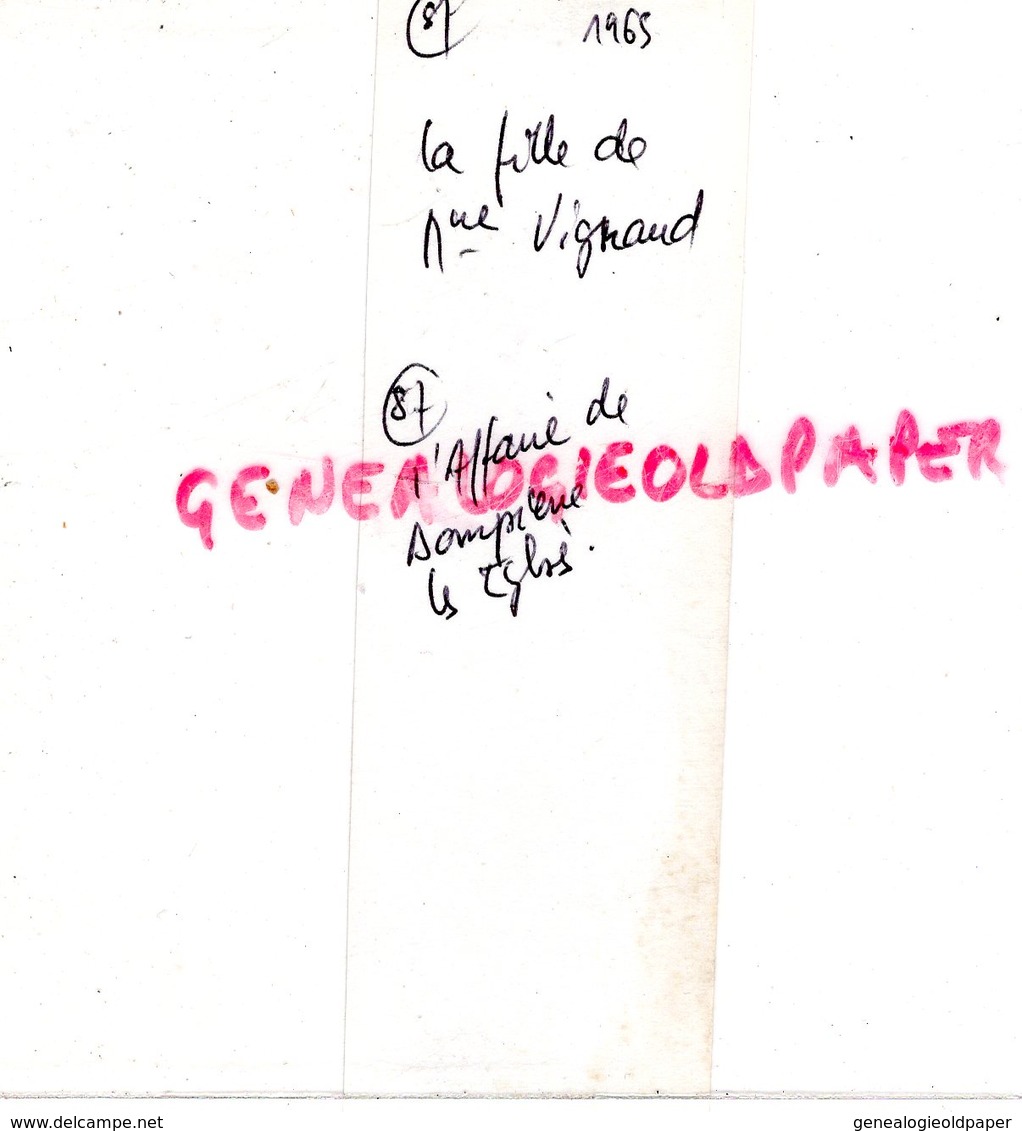 87 1965
la fille de
Mme Vignaud
87
l'Affaire de
GENEALOGIEOLDPAPER
Dompierre
les Eglises.
www.delcampe.net genealogieoldpaper